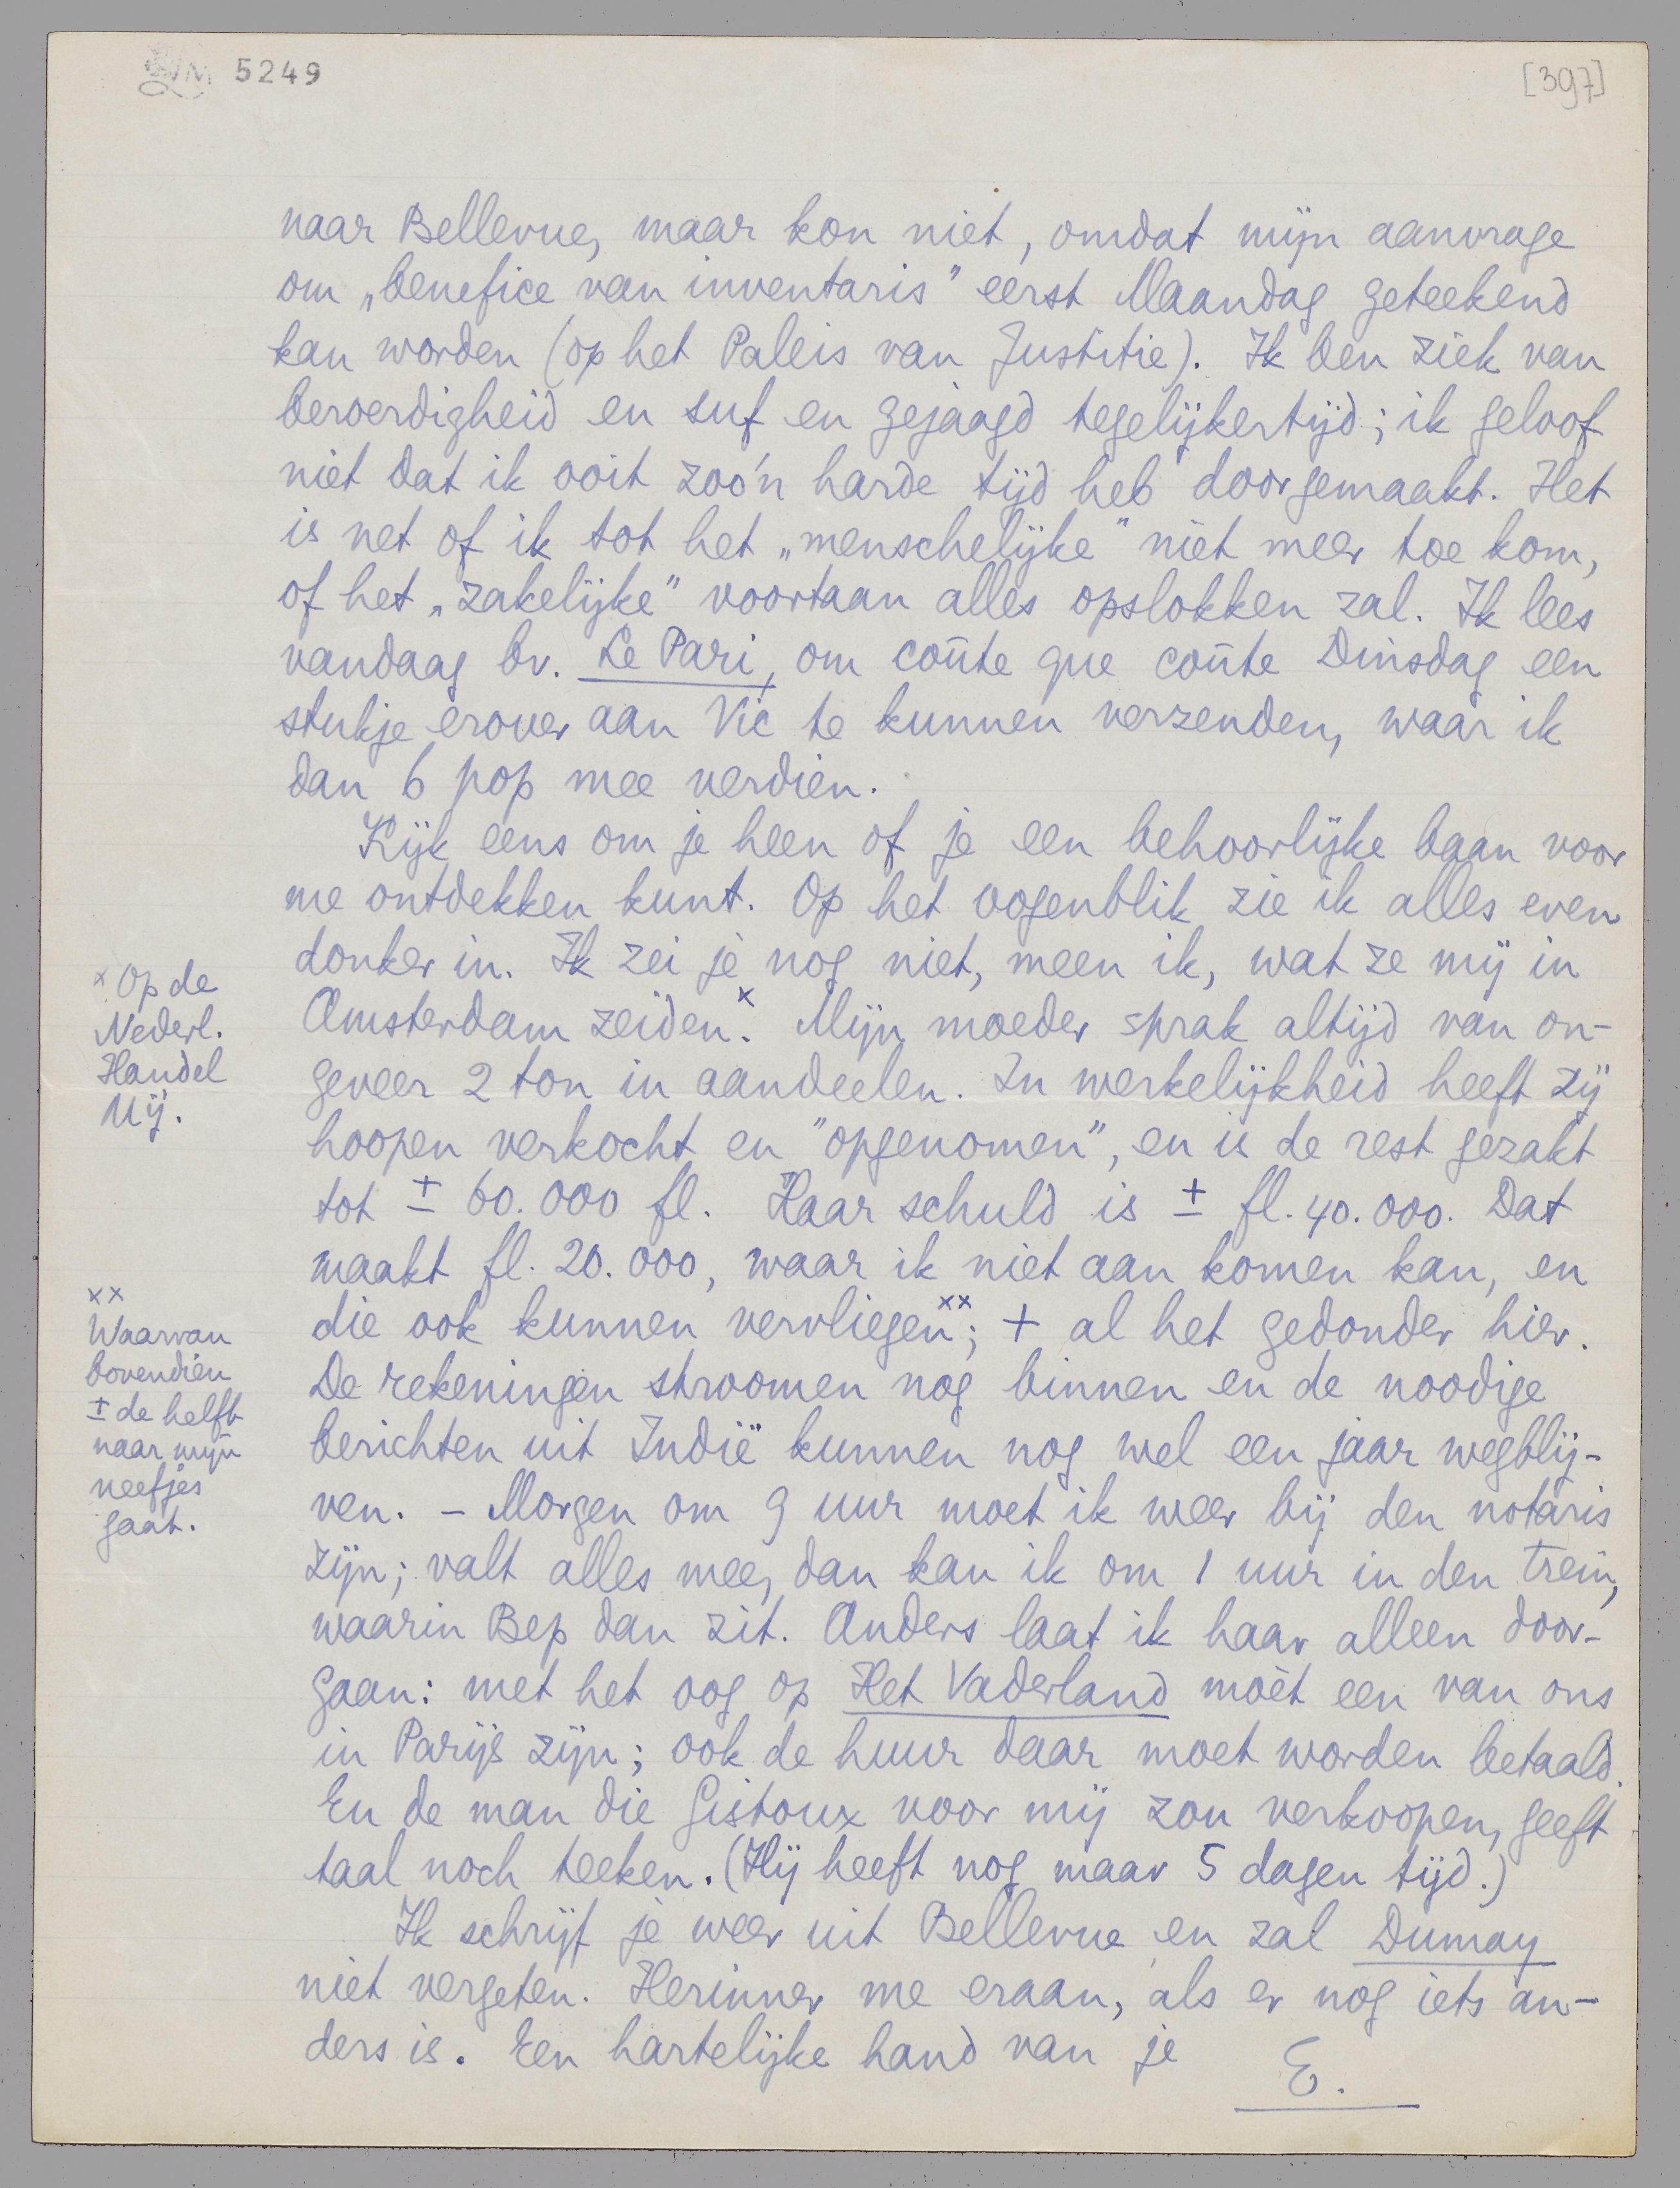 5249
[397]
naar Bellevue, maar kon niet, omdat mijn aanvrage
om „benefice van inventaris" eerst Maandag geteekend
kan worden (op het Paleis van Justitie). Ik ben ziek van
beroerdigheid en suf en gejaagd tegelijkertijd; ik geloof
niet dat ik ooit zoo'n harde tijd heb doorgemaakt. Het
is net of ik tot het „menschelijke" niet meer toe kom,
of het „zakelijke" voortaan alles opslokken zal. Ik lees
vandaag bv. Le Pari, om coûte que coûte Dinsdag een
stukje erover aan Vic te kunnen verzenden, waar ik
dan 6 pop mee verdien.
Kijk eens om je heen of je een behoorlijke baan voor
me ontdekken kunt. Op het oogenblik zie ik alles even
donker in. Ik zei je nog niet, meen ik, wat ze mij in
Amsterdam zeiden.x Mijn moeder sprak altijd van on-
geveer 2 ton in aandeelen. In werkelijkheid heeft zij
hoopen verkocht en "opgenomen", en is de rest gezakt
tot ± 60.000 fl. Haar schuld is ± fl. 40.000. Dat
maakt fl. 20.000, waar ik niet aan komen kan, en
die ook kunnen vervliegen xx; + al het gedonder hier.
De rekeningen stroomen nog binnen en de noodige
berichten uit Indië kunnen nog wel een jaar wegblij-
ven. – Morgen om 9 uur moet ik weer bij den notaris
zijn; valt alles mee, dan kan ik om 1 uur in den trein,
waarin Bep dan zit. Anders laat ik haar alleen door-
gaan: met het oog op Het Vaderland moèt een van ons
in Parijs zijn; ook de huur daar moet worden betaald.
En de man die Gistoux voor mij zou verkoopen, geeft
taal noch teeken. (Hij heeft nog maar 5 dagen tijd.)
Ik schrijf je weer uit Bellevue en zal Dumay
niet vergeten. Herinner me eraan, als er nog iets an-
ders is. Een hartelijke hand van je
E.
x Op de
Nederl.
Handel
Mij.
xx
Waarvan
bovendien
± de helft
naar mijn
neefjes
gaat.